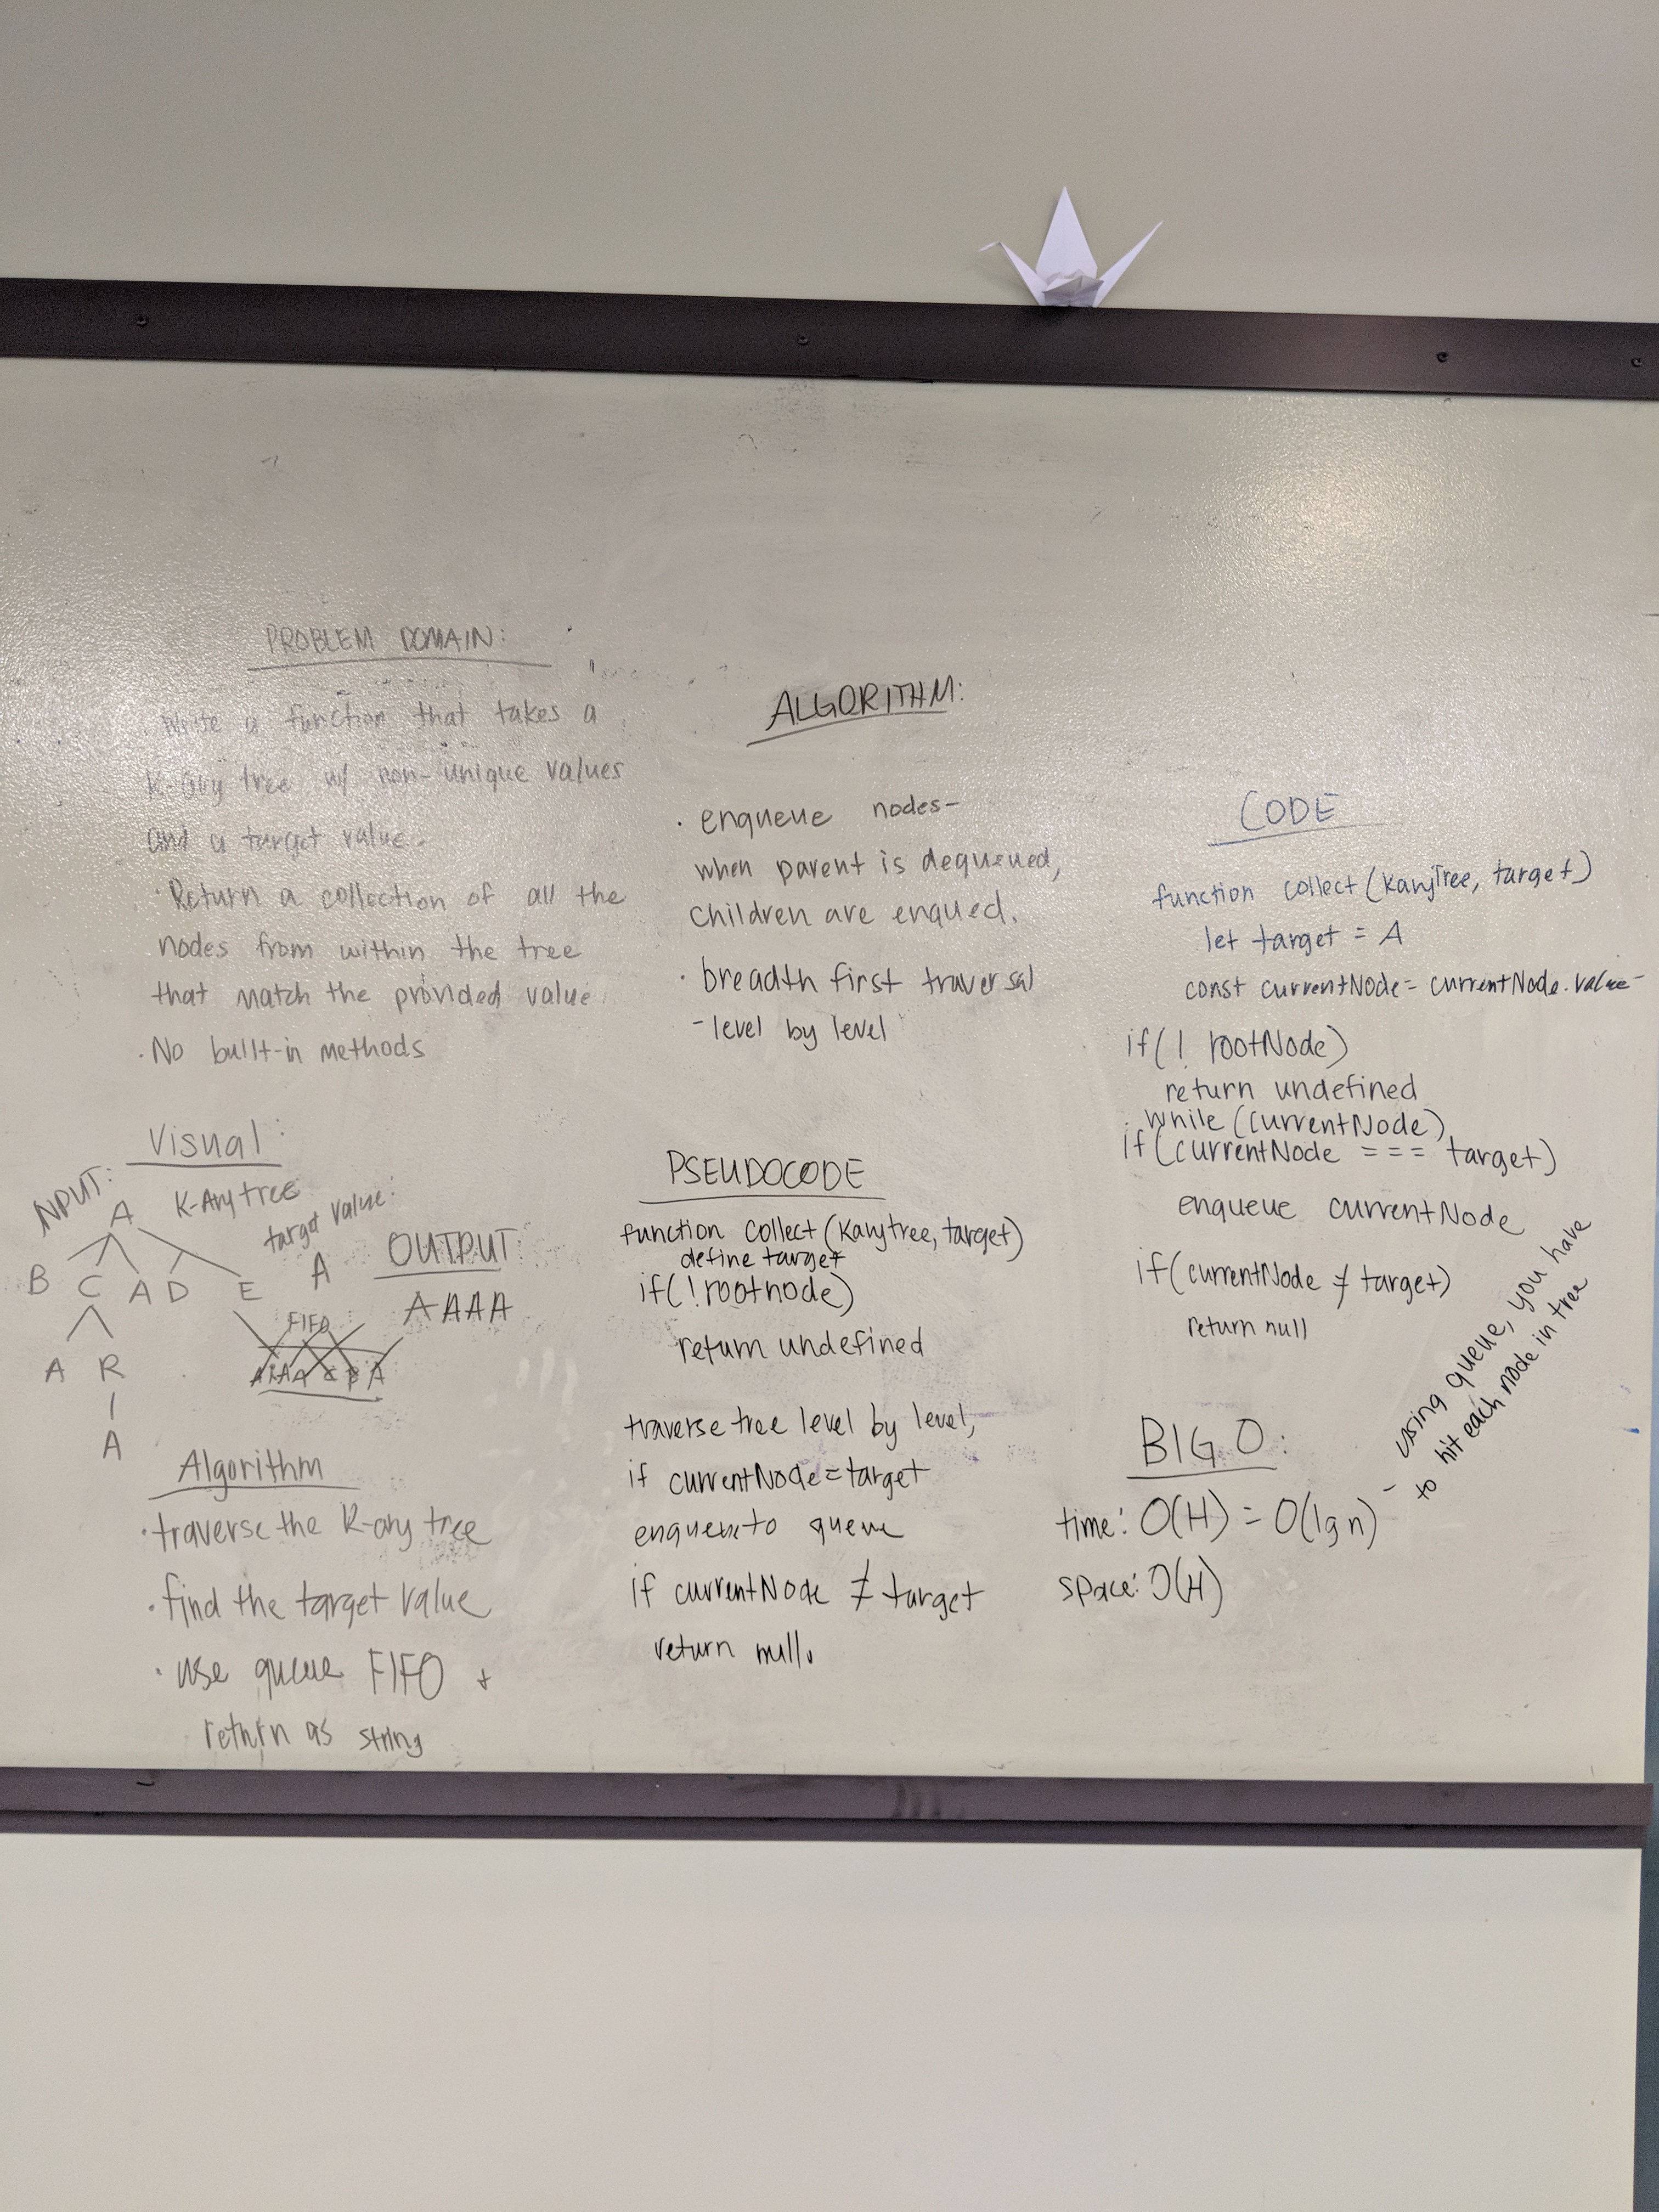 PROBLEM DOMAIN:
· Write a function that takes a
K-ary tree w/ non-unique values
and a target value.
· Return a collection of all the
nodes from within the tree
that match the provided value.
· No built-in methods
Visual:
INPUT:
K-Ary tree
target value:
A
A
B C A D E
A R
A
OUTPUT:
AAAA
FIFO
Algorithm
· traverse the K-ary tree
· find the target value
· use queue FIFO +
return as string
ALGORITHM:
· enqueue nodes-
when parent is dequeued,
children are enqued.
· breadth first traversal
- level by level
PSEUDOCODE
function collect (Karytree, target)
define target
if(!rootnode)
return undefined
traverse tree level by level,
if currentNode=target
enqueue to queue
if currentNode ≠ target
return null.
CODE
function collect (KaryTree, target)
let target = A
const currentNode = currentNode.value
if(! rootNode)
return undefined
while (currentNode)
if(currentNode === target)
enqueue currentNode
if(currentNode ≠ target)
return null
BIG O:
time: O(H) = O(lg n)
- using queue, you have
to hit each node in tree
space: O(H)